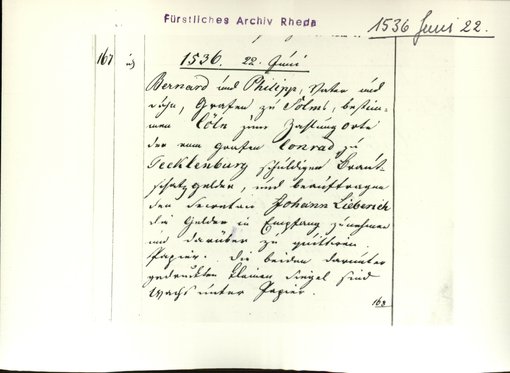 Fürstliches Archiv Rheda
1536 Juni 22.
167
1536. 22. Juni
Bernard und Philipp, Vater und
Sohn, Grafen zu Solms, bestim-
men Cöln zum Zahlungsorte
der vom Grafen Conrad zu
Tecklenburg schuldigen Braut-
schatzgelder, und beauftragen
den Secretair Johann Lieberich
die Gelder in Empfang zu nehmen
und darüber zu quittiren.
Papier. Die beiden darunter
gedruckten kleinen Siegel sind
Wachs unter Papier.
168